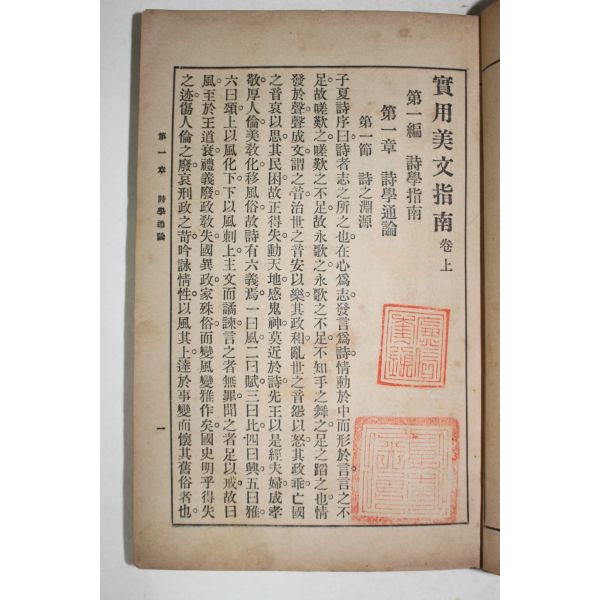 實用美文指南 卷上
第一編 詩學指南
第一章 詩學通論
第一節 詩之淵源
子夏詩序曰詩者志之所之也在心爲志發言爲詩情動於中而形於言言之不
足故嗟歎之嗟歎之不足故永歌之永歌之不足不知手之舞之足之蹈之也情
發於聲聲成文謂之音治世之音安以樂其政和亂世之音怨以怒其政乖亡國
之音哀以思其民困故正得失動天地感鬼神莫近於詩先王以是經夫婦成孝
敬厚人倫美敎化移風俗故詩有六義焉一曰風二曰賦三曰比四曰興五曰雅
六曰頌上以風化下下以風刺上主文而譎諫言之者無罪聞之者足以戒故曰
風至於王道衰禮義廢政敎失國異政家殊俗而變風變雅作矣國史明乎得失
之迹傷人倫之廢哀刑政之苛吟詠情性以風其上達於事變而懷其舊俗者也
第一章 詩學通論
一